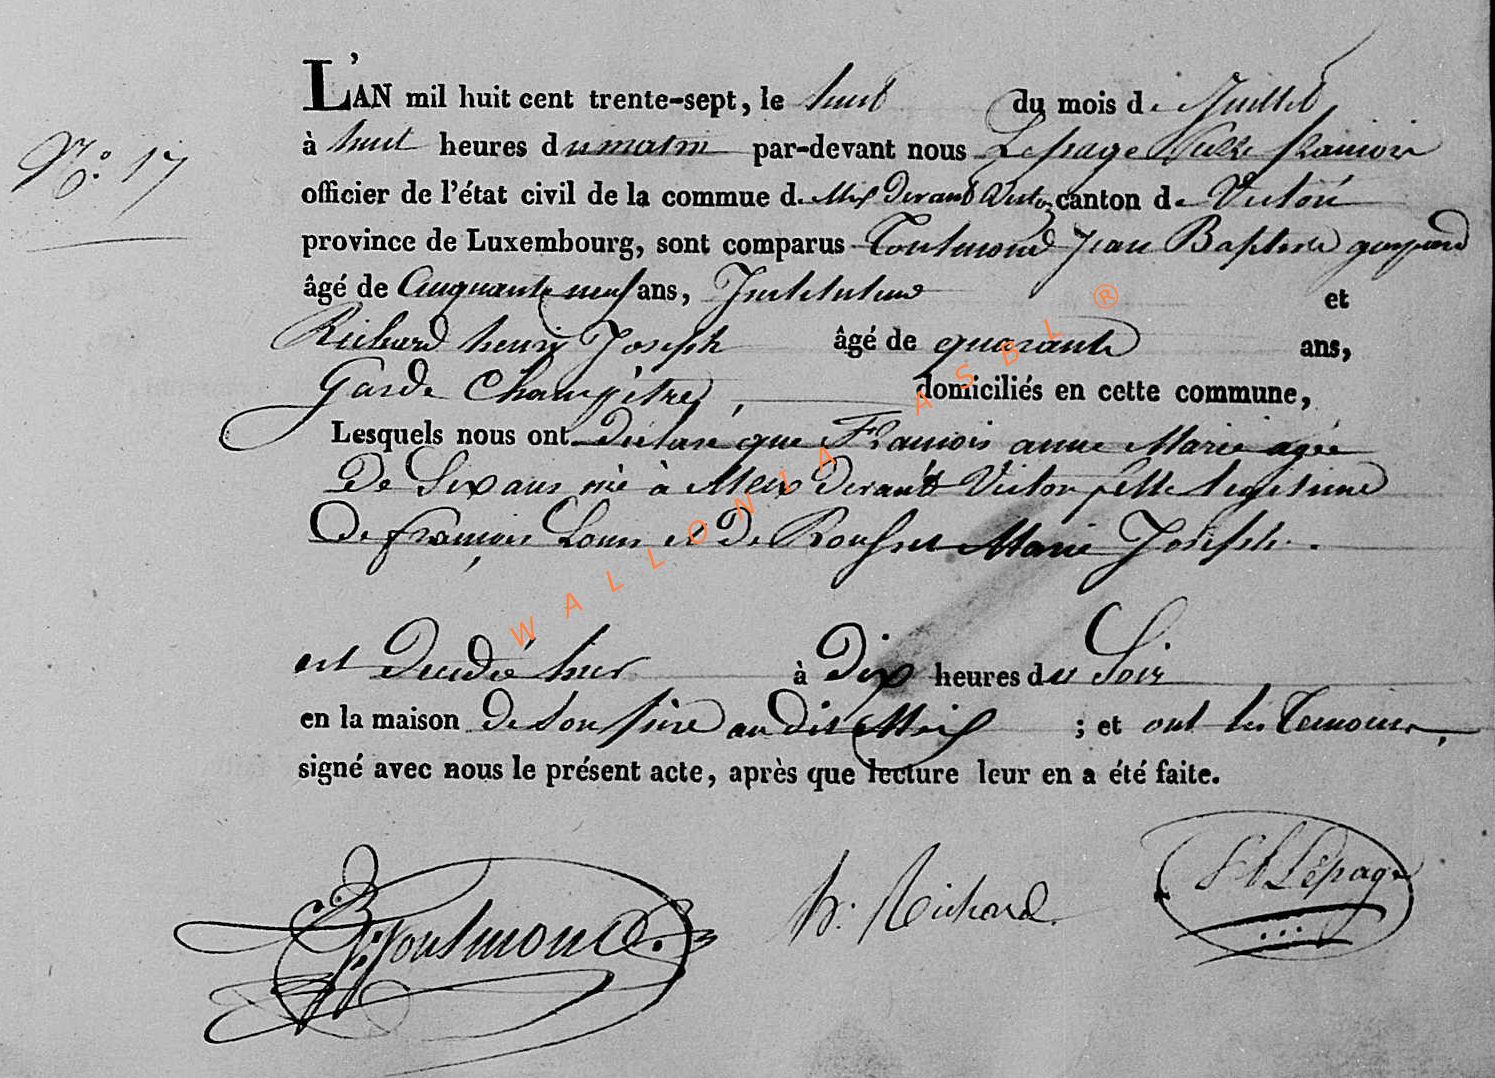 N.° 17
L'AN mil huit cent trente-sept, le huit du mois de Juillet
à huit heures du matin par-devant nous Lepage
officier de l'état civil de la commue de Meix Devant Virton canton de Virton
province de Luxembourg, sont comparus Toutmond Jean Baptiste
âgé de Cinquante neuf ans, Instituteur et
Richard henri Joseph âgé de quarante ans,
Garde Champêtre, domiciliés en cette commune,
Lesquels nous ont Déclaré que François anne Marie agée
De Six ans né à Meix Devant Virton fille legitime
De françois Louis et De Rousset Marie Joseph.
est Décédé hier à Dix heures du Soir
en la maison De Son père au Dit Meix ; et ont les Temoins,
signé avec nous le présent acte, après que lecture leur en a été faite.
Toutmond. h. Richard Lepage
WALLONIA ASBL ®